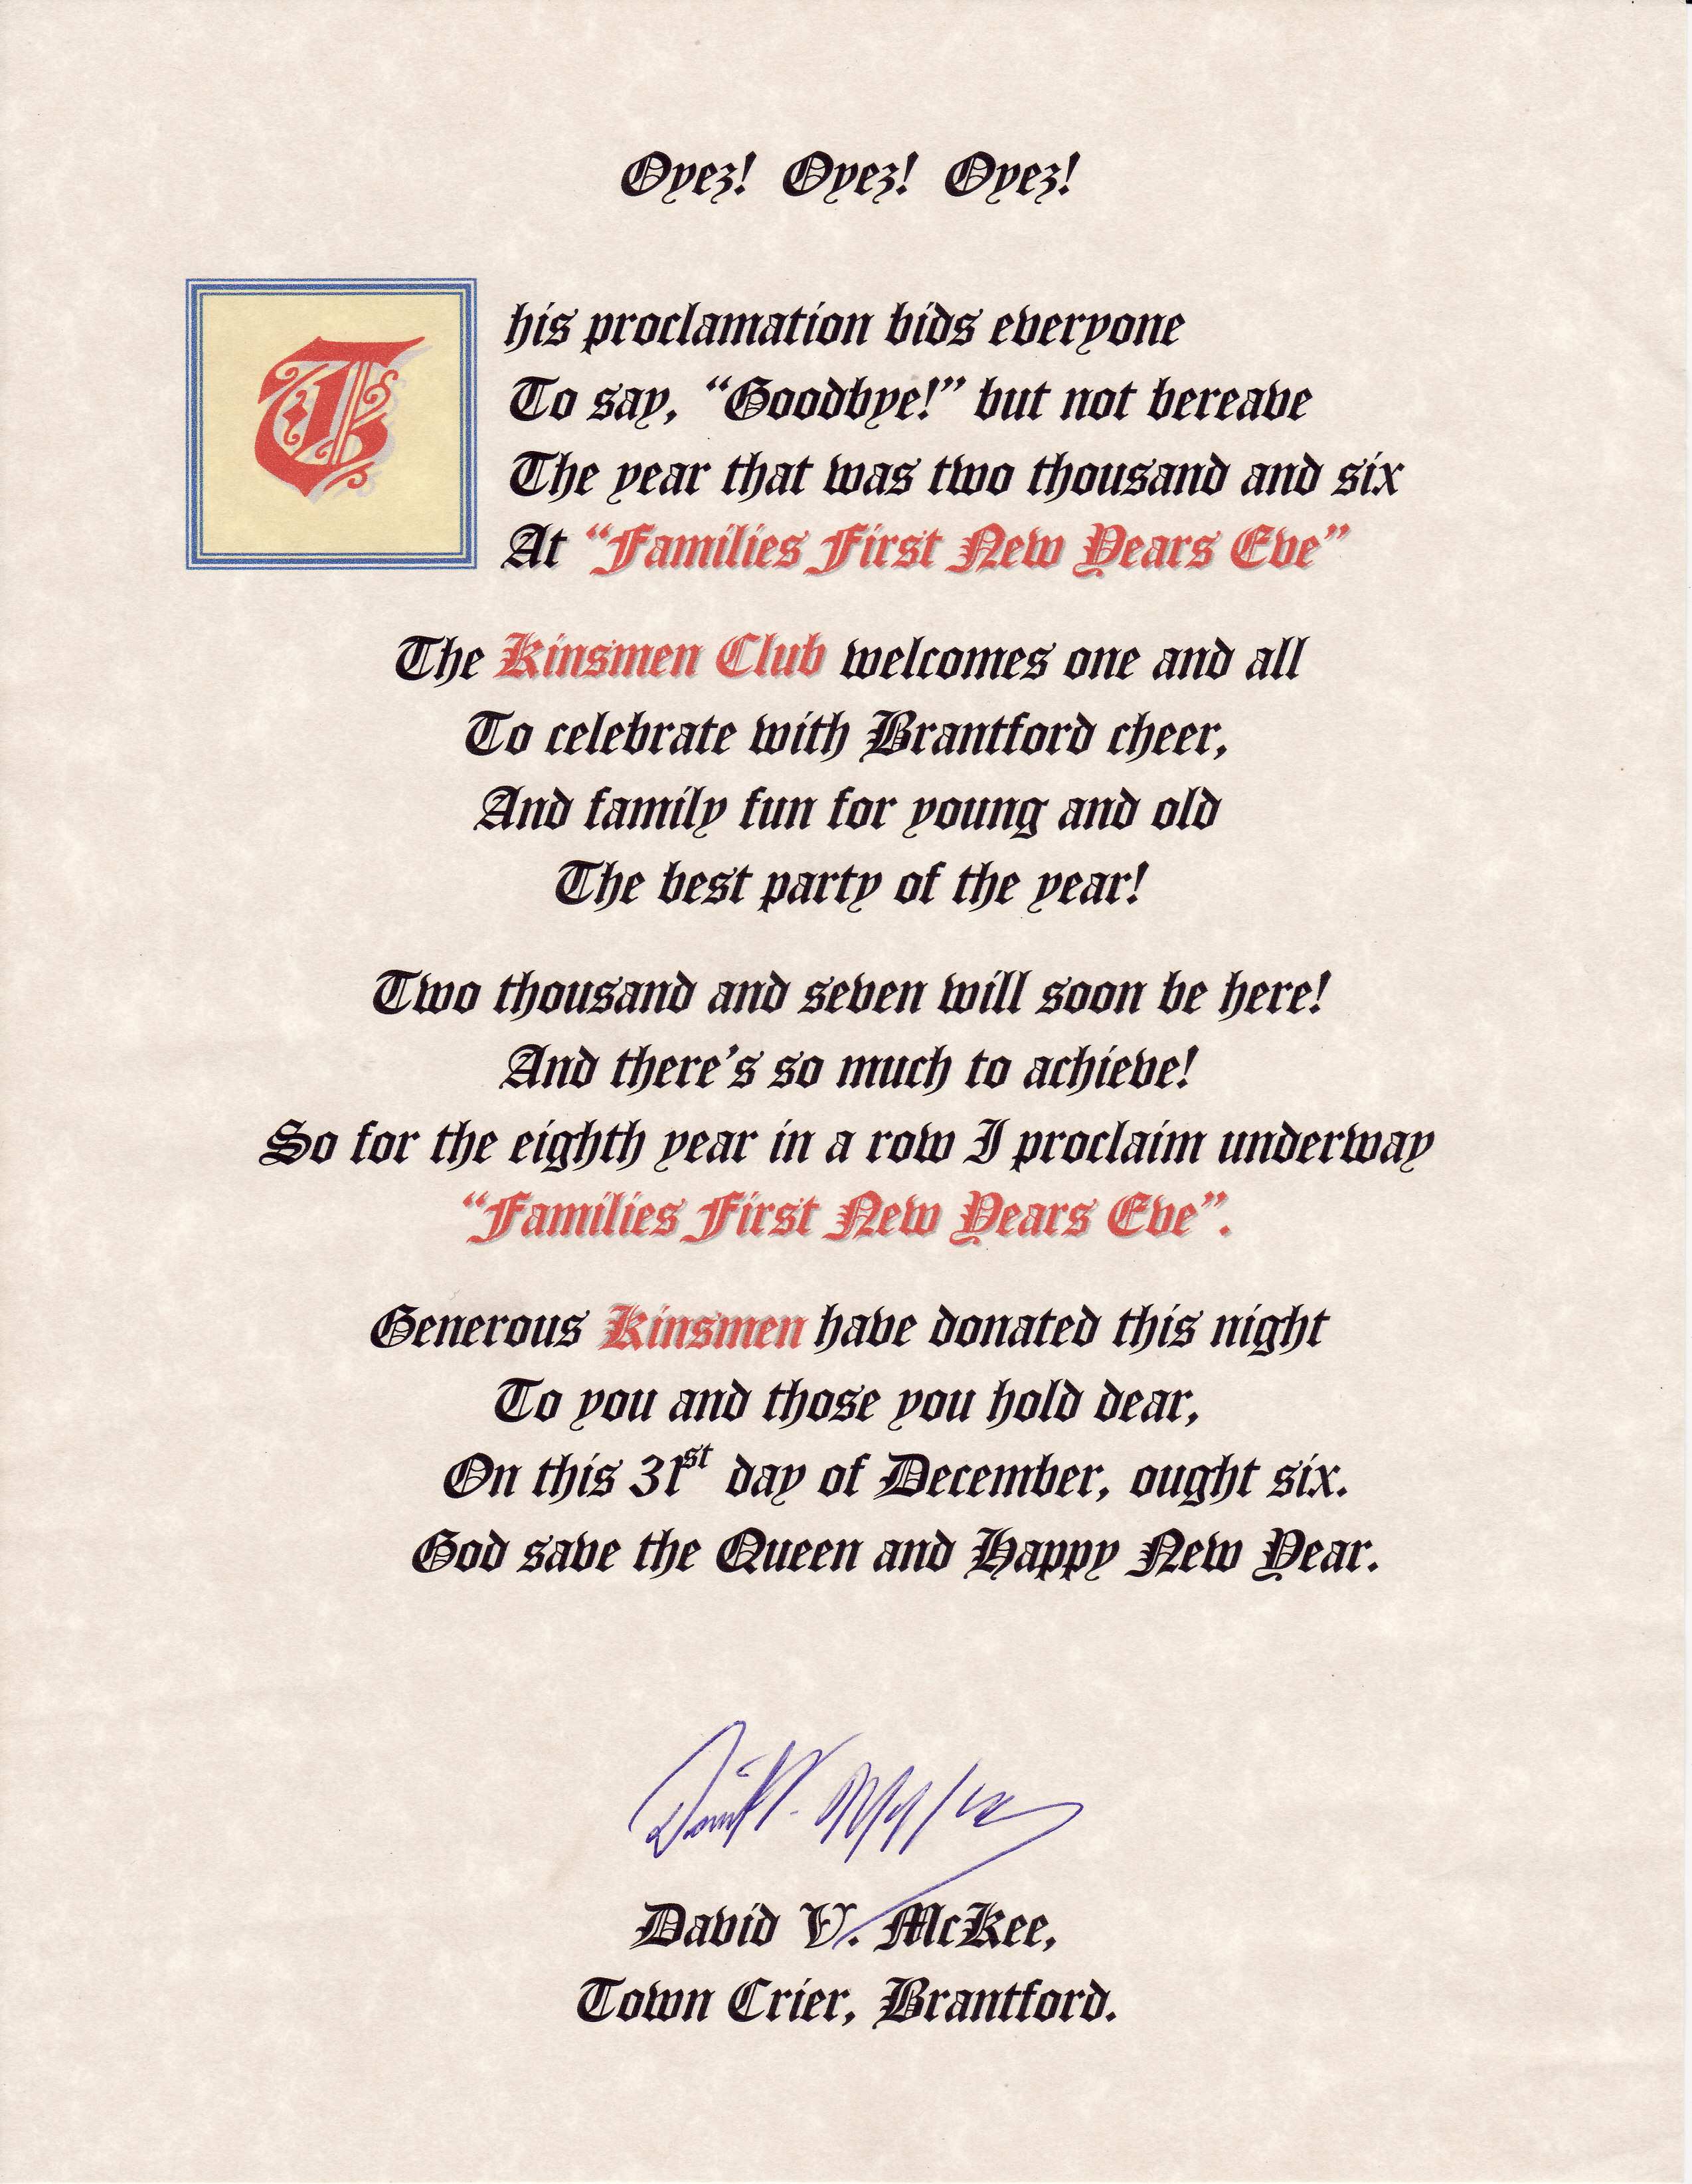 Oyez! Oyez! Oyez!
This proclamation bids everyone
To say, “Goodbye!” but not bereave
The year that was two thousand and six
At “Families First New Years Eve”
The Kinsmen Club welcomes one and all
To celebrate with Brantford cheer,
And family fun for young and old
The best party of the year!
Two thousand and seven will soon be here!
And there’s so much to achieve!
So for the eighth year in a row I proclaim underway
“Families First New Years Eve”.
Generous Kinsmen have donated this night
To you and those you hold dear,
On this 31st day of December, ought six.
God save the Queen and Happy New Year.
David V. McKee,
Town Crier, Brantford.